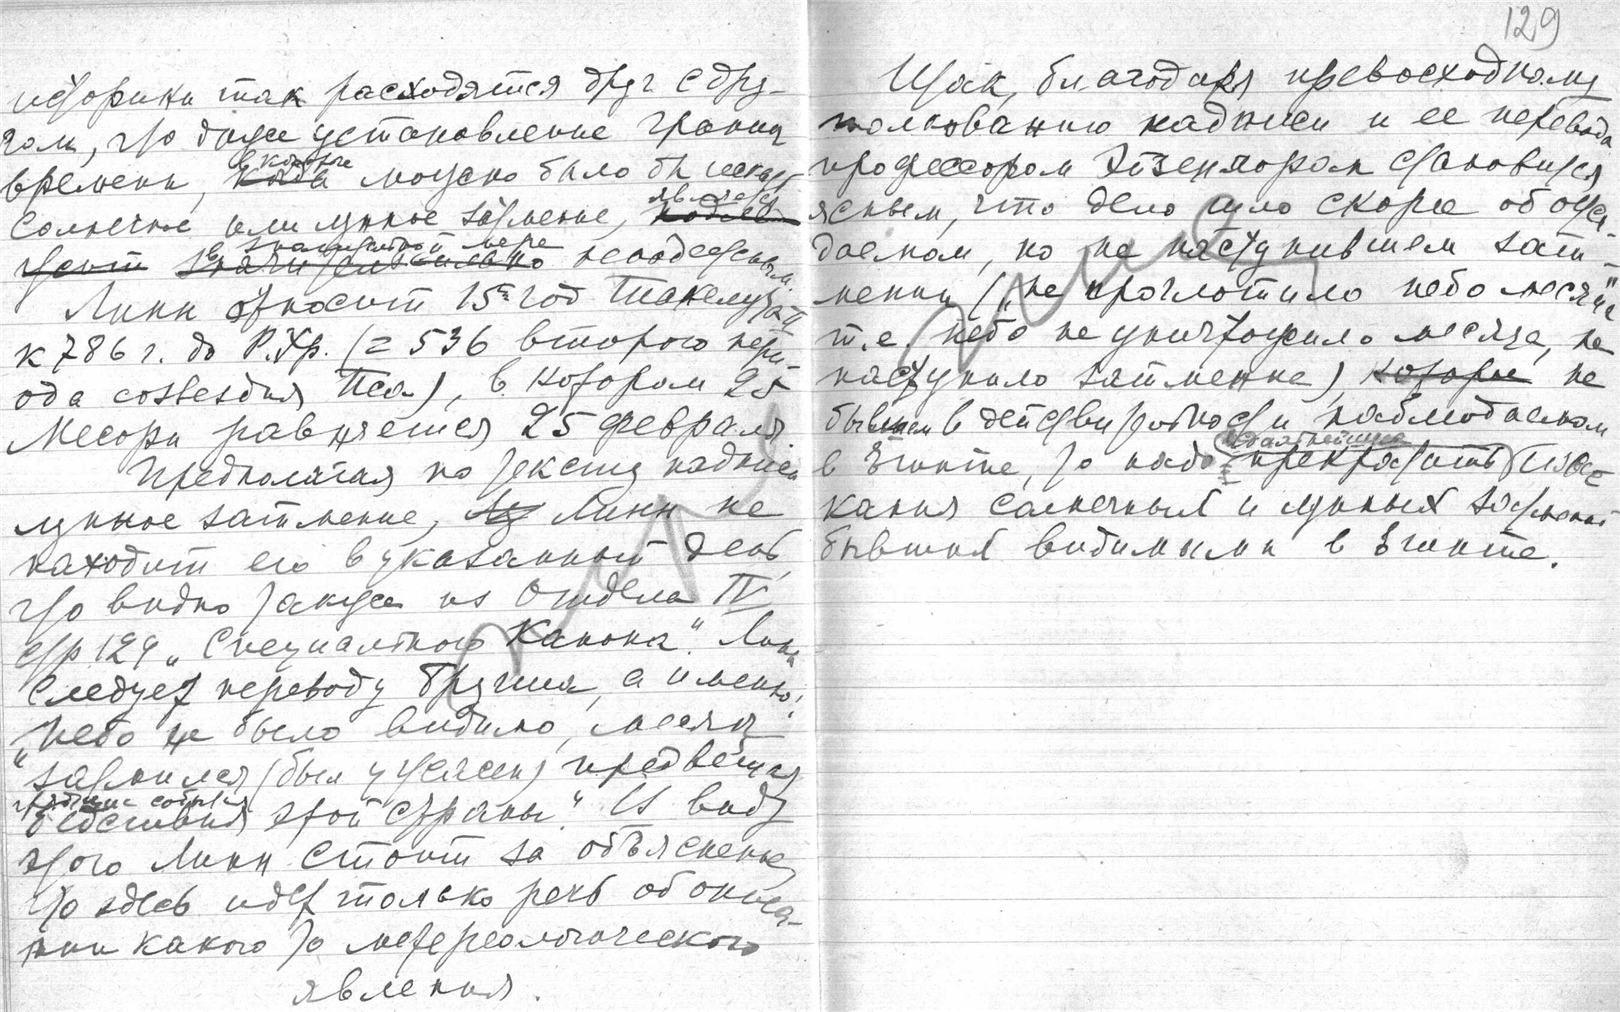 историки так расходятся друг с дру-
гом, что даже установление границ
времени, в которые можно было бы искать
солнечное или лунное затмение, является
в значительной мере необоснованным.
Линн относит 15й год Такелута II
к 786 г. до Р.Хр. (= 536 второго пери-
ода созвездия Пса), в котором 25
Месори равняется 25 февраля.
Предполагая по тексту надписи
лунное затмение, Линн не
находит его в указанный день,
что видно также из отдела IV,
стр 129 „Специального Канона". Линн
следует переводу Бругша, а именно:
„Небо не было видимо, месяц
затмился (был ужасен) предвещая
грядущие события
бедствия этой страны." В виду
этого Линн стоит за объяснение,
что здесь идет только речь об описа-
нии какого то метереологического
явления.
129
Итак, благодаря превосходному
толкованию надписи и ее перевода
профессором Эйзенлором становится
ясным, что дело шло скорее об ожи-
даемом, но не наступившем зат-
мении („не проглотило небо месяц",
т.е. небо не уничтожило месяца, не
наступило затмение) которое не
бывшем в действительности наблюдаемом
в Египте, то надо прекратить изыс-
кания солнечных и лунных затмений
бывших видимыми в Египте.